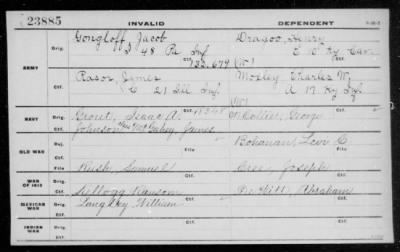 23885
INVALID
DEPENDENT
Gongloff, Jacob
Dragoo, Henry
Orig. 48 Pa Inf
E 10" Ky Cav
Ctf. 133,679
(W)
ARMY
Rasor, James
Mosley, Charles W,
Orig. C 21 Ill Inf
A 17 Ky Inf
Ctf.
(W)
NAVY
Orig. Grout, Isaac A.
Collier, George
Ctf. Johnson James
OLD WAR
Bohanan, Levi C
File
File
Rush, Samuel
Cree, Joseph
WAR OF 1812
Orig.
Ctf. Kellogg Ransom
DeWitt, Abraham
MEXICAN WAR
Orig. Langley, William
Ctf.
INDIAN WAR
Orig.
Ctf.